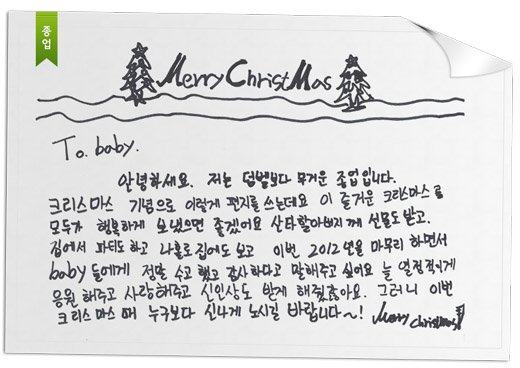 종업
Merry ChristMas
To. baby.
안녕하세요. 저는 덤벨보다 무거운 종업입니다.
크리스마스 기념으로 이렇게 편지를 쓰는데요 이 즐거운 크리스마스를
모두가 행복하게 보냈으면 좋겠어요 산타할아버지께 선물도 받고.
집에서 파티도 하고 나홀로 집에도 보고 이번 2012년을 마무리 하면서
baby 들에게 정말 수고했고 감사하다고 말해주고 싶어요 늘 열정적이게
응원 해주고 사랑해주고 신인상도 받게 해줬잖아요. 그러니 이번
크리스마스 때 누구보다 신나게 노시길 바랍니다~! Merry christmas!